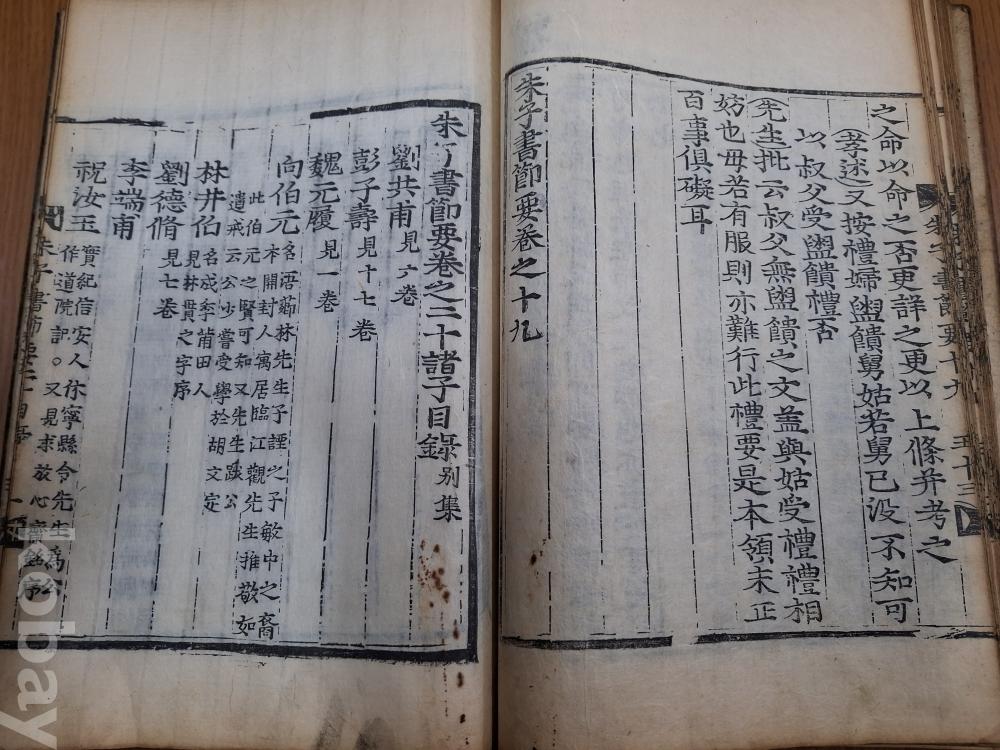 之命以命之否更詳之更以上條并考之
孝述又按禮婦盥饋舅姑若舅已没不知可
以叔父受盥饋禮否
先生批云叔父無盥饋之文盖與姑受禮禮相
妨也毋若有服則亦難行此禮要是本領未正
百事俱礙耳
朱子書節要卷之十九
朱子書節要十九
五十三
朱子書節要卷之二十諸子目錄 别集
劉共甫 見六卷
彭子壽 見十七卷
魏元履 見一卷
向伯元 名浯薌林先生子諲之子敏中之裔
本開封人寓居臨江觀先生推敬如
此伯元之賢可知又先生跋公
遺戒云公少嘗受學於胡文定
林井伯 名成季莆田人
見林貫之字序
劉德脩 見七卷
李端甫
祝汝玉 寶紀信安人休寧縣令先生爲公
作道院記○又見求放心齋銘序
kobay